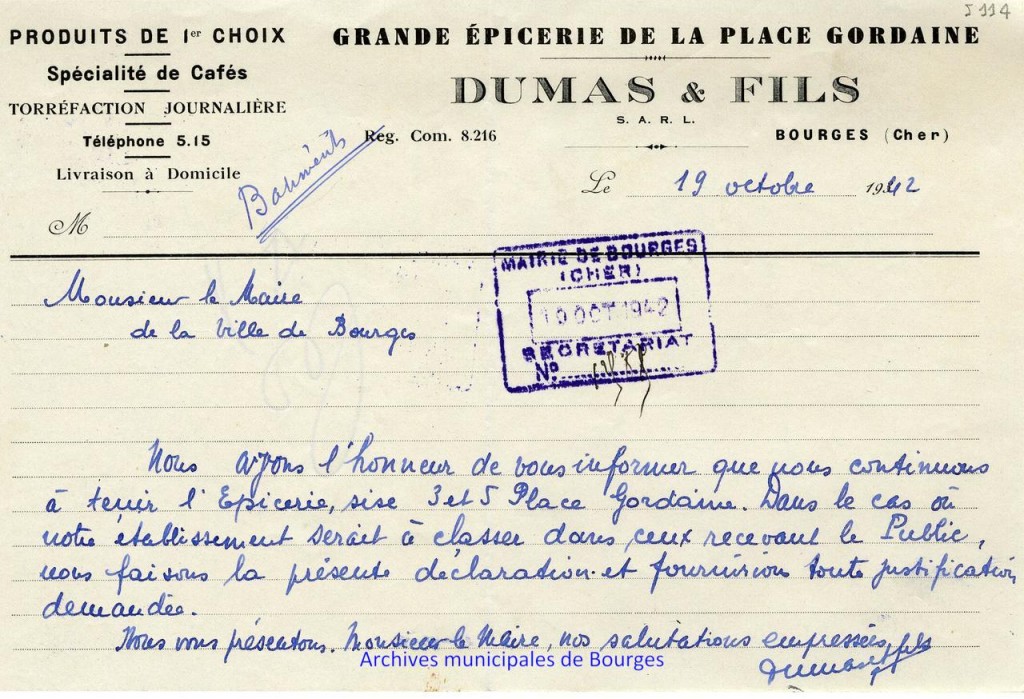 J 114
PRODUITS DE 1er CHOIX
Spécialité de Cafés
TORRÉFACTION JOURNALIÈRE
Téléphone 5.15
Livraison à Domicile
GRANDE ÉPICERIE DE LA PLACE GORDAINE
DUMAS & FILS
S. A. R. L.
Reg. Com. 8.216
BOURGES (Cher)
Bâtiments
Le 19 octobre 1942
M
MAIRIE DE BOURGES
(CHER)
OCT 1942
SECRETARIAT
No
Monsieur le Maire
de la Ville de Bourges
Nous avons l'honneur de vous informer que nous continuons
à tenir l'Epicerie, sise 3 et 5 Place Gordaine. Dans le cas où
notre établissement serait à classer dans ceux recevant le Public,
nous faisons la présente déclaration et fournirion toute justification
demandée.
Nous vous présentons, Monsieur le Maire, nos salutations empressées
Dumas et fils
Archives municipales de Bourges